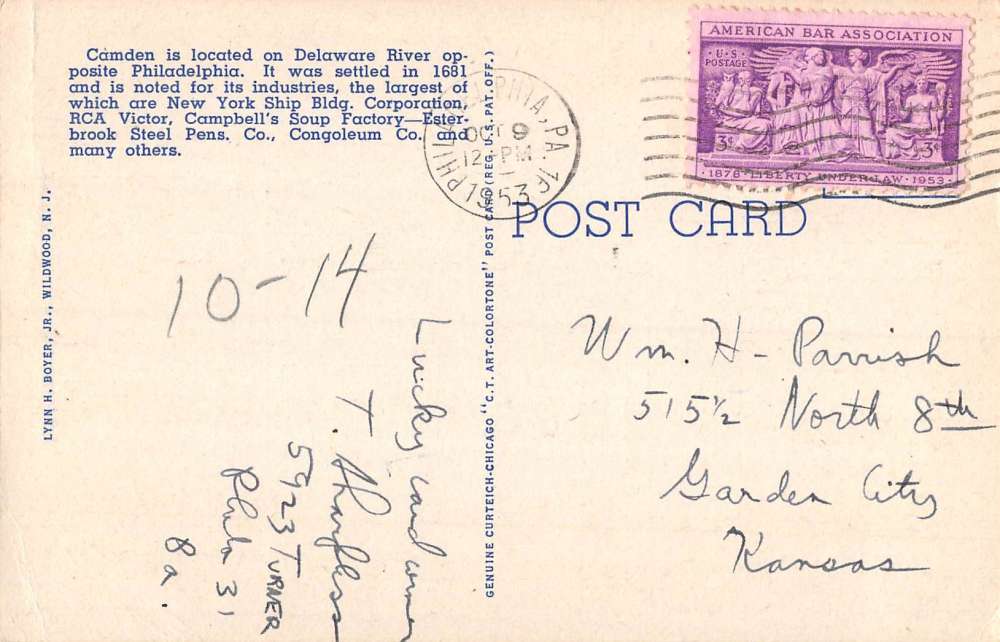 Camden is located on Delaware River op-
posite Philadelphia. It was settled in 1681
and is noted for its industries, the largest of
which are New York Ship Bldg. Corporation,
RCA Victor, Campbell's Soup Factory—Ester-
brook Steel Pens. Co., Congoleum Co. and
many others.
LYNN H. BOYER, JR., WILDWOOD, N. J.
10-14
Lucky card corner
T. Sharpless
5923 TURNER
Phila 31
Pa.
GENUINE CURTEICH-CHICAGO "C.T. ART-COLORTONE" POST CARD (REG. U.S. PAT. OFF.)
PHILADELPHIA, PA. 16
OCT 9
12 - PM
1953
AMERICAN BAR ASSOCIATION
U·S·
POSTAGE
3¢ 3¢
1878·LIBERTY UNDER LAW·1953
POST CARD
Wm. H - Parrish
515½ North 8th
Garden City
Kansas